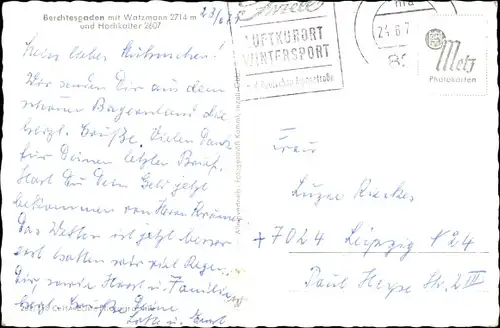 Berchtesgaden mit Watzmann 2714 m
und Hochkalter 2607
23/6 78
Mein liebes Mühmchen!
Wir senden Dir aus dem
schönen Bayernland die
herzl. Grüße. Vielen Dank
für Deinen letzten Brief.
Hast Du Dein Geld jetzt
bekommen von Herrn
Das Wetter ist jetzt besser
erst hatten wir viel Regen.
Dir, sowie Horst u. Familie
herzl. Grüße Deine
u.
LUFTKURORT
WINTERSPORT
Deutschen Alpenstraße
24.6.7
82
Metz
Photokarten
Frau
7024 Leipzig N 24
Paul Heyse Str. 2 III